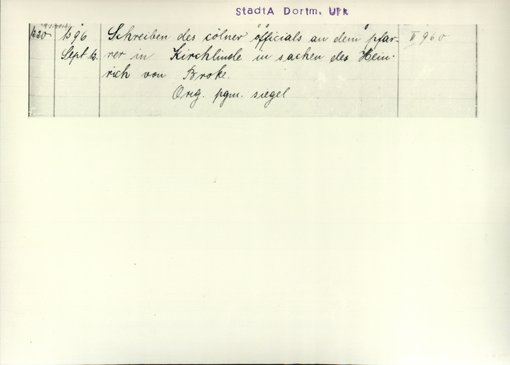 StadtA Dortm. Urk
1396 Schreiben des cölner officials an dem pfar- II 960
Sept 12. rer in Kirchlinde in sachen des Hein-
rich von Broke.
Orig. pgm. siegel